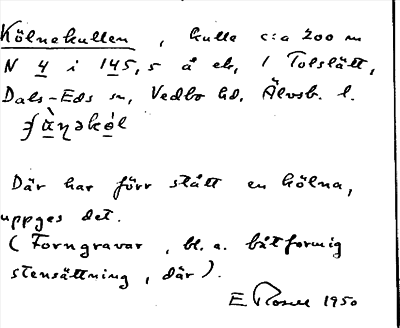 Kölnekullen, kulle c:a 200 m
N 4 i 145,5 å ek, i Tolslätt,
Dals-Eds sn, Vedbo hd, Älvsb. l.
Där har förr stått en kölna,
uppges det.
(Forngravar, bl. a. båtformig
stensättning, där).
E 1950